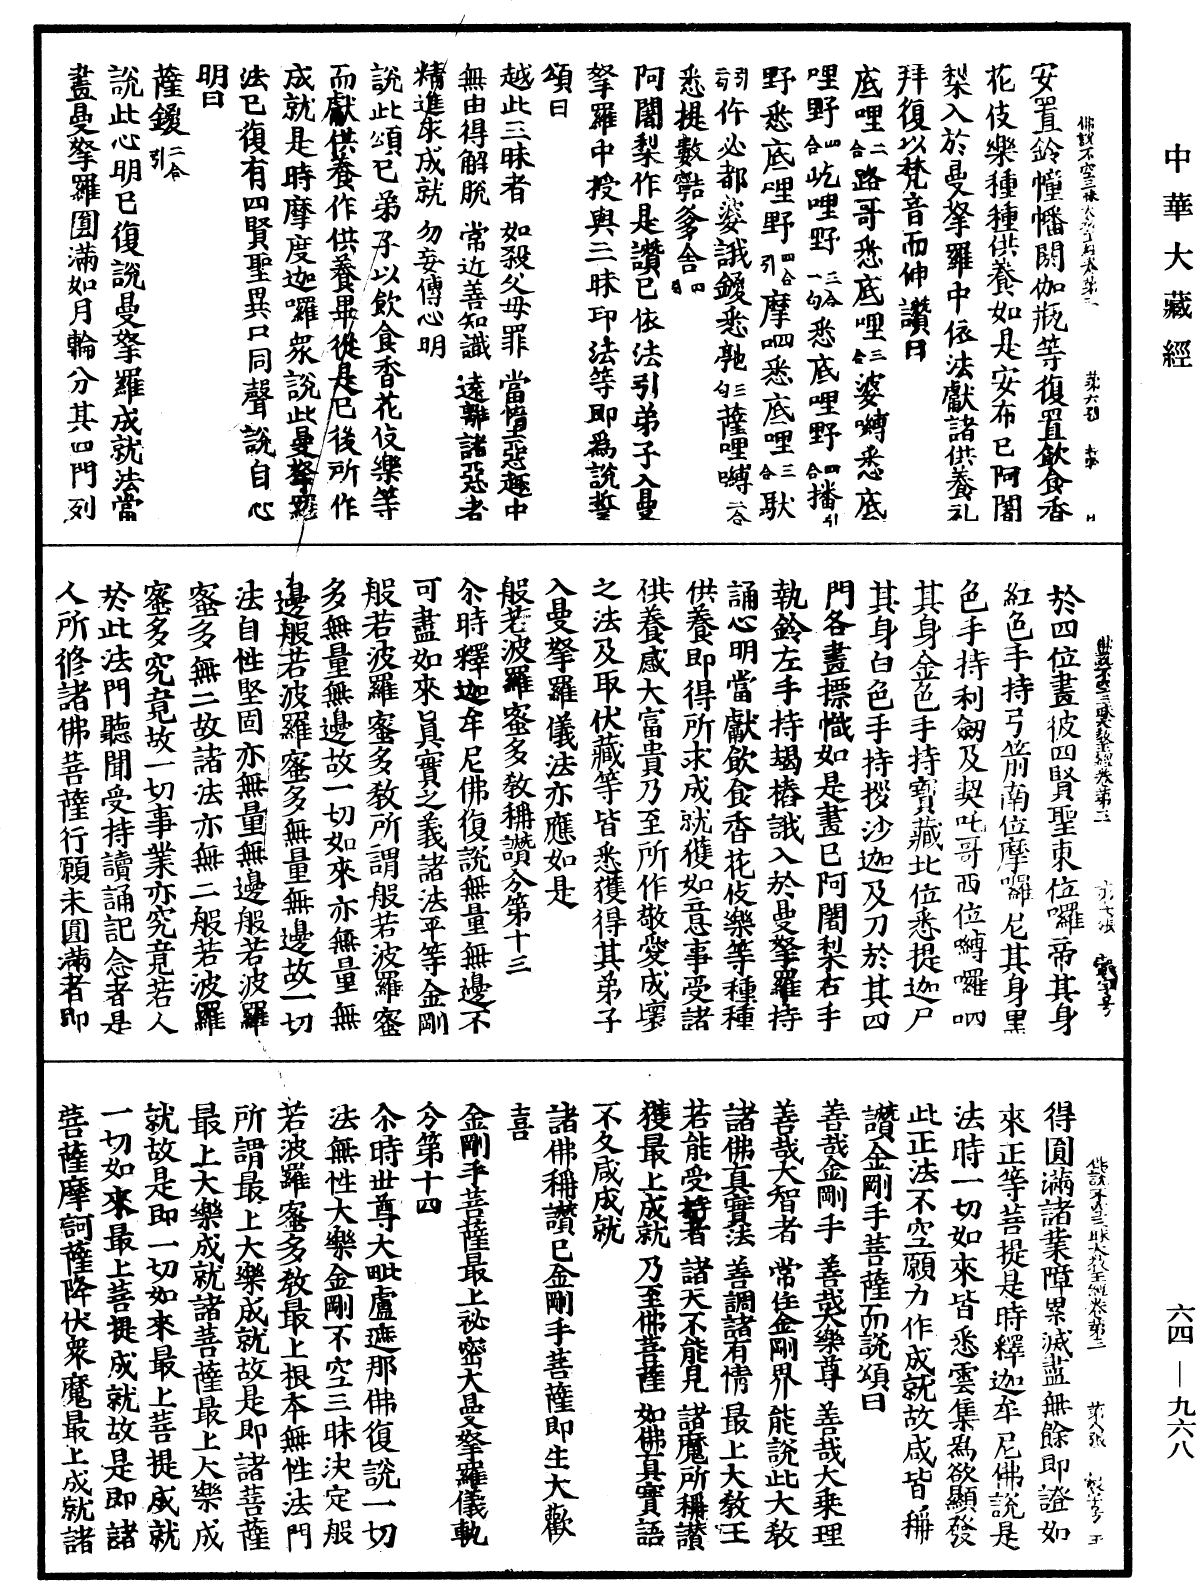 中華大藏經
安置鈴幢幡閼伽瓶等復置飲食香
花伎樂種種供養如是安布已阿闍
梨入於曼拏羅中依法獻諸供養礼
拜復以梵音而伸讚曰
底哩二合路哥悉底哩三合婆嚩悉底
哩野四合屹哩野三合一句悉底哩野四合播引
野悉底哩野四合引摩呬悉底哩三合馱
引句仵必都婆誐鑁悉馳三句薩哩嚩二合
悉提數嚭爹舍四句
阿闍梨作是讚已依法引弟子入曼
拏羅中授與三昧印法等即爲說誓
頌曰
越此三昧者　如殺父母罪　當墮惡趣中
無由得解脫　常近善知識　遠離諸惡者
精進求成就　勿妄傳心明
說此頌已弟子以飲食香花伎樂等
而獻供養作供養畢從是已後所作
成就是時摩度迦囉衆說此曼拏羅
法已復有四賢聖異口同聲說自心
明曰
薩鑁二合引
說此心明已復說曼拏羅成就法當
畫曼拏羅圓滿如月輪分其四門列
於四位畫彼四賢聖東位囉帝其身
紅色手持弓箭南位摩囉尼其身黑
色手持利劒及契吒哥西位嚩囉呬
其身金色手持寶藏北位悉提迦尸
其身白色手持拶沙迦及刀於其四
門各畫摽幟如是畫已阿闍梨右手
執鈴左手持朅樁誐入於曼拏羅持
誦心明當獻飲食香花伎樂等種種
供養即得所求成就獲如意事受諸
供養感大富貴乃至所作敬愛成壞
之法及取伏藏等皆悉獲得其弟子
入曼拏羅儀法亦應如是
般若波羅蜜多教稱讚分第十三
尒時釋迦牟尼佛復說無量無邊不
可盡如來眞實之義諸法平等金剛
般若波羅蜜多教所謂般若波羅蜜
多無量無邊故一切如來亦無量無
邊般若波羅蜜多無量無邊故一切
法自性堅固亦無量無邊般若波羅
蜜多無二故諸法亦無二般若波羅
蜜多究竟故一切事業亦究竟若人
於此法門聽聞受持讀誦記念者是
人所修諸佛菩薩行願未圓滿者即
得圓滿諸業障累滅盡無餘即證如
來正等菩提是時釋迦牟尼佛說是
法時一切如來皆悉雲集爲欲顯發
此正法不空願力作成就故咸皆稱
讚金剛手菩薩而說頌曰
善哉金剛手　善哉大樂尊　善哉大乘理
善哉大智者　常住金剛界　能說此大教
諸佛眞實法　善調諸有情　最上大教王
若能受持者　諸天不能見　諸魔所稱讚
獲最上成就　乃至佛菩薩　如佛眞實語
不久咸成就
諸佛稱讚已金剛手菩薩即生大歡
喜
金剛手菩薩最上祕密大曼拏羅儀軌
分第十四
尒時世尊大毗盧遮那佛復說一切
法無性大樂金剛不空三昧決定般
若波羅蜜多教最上根本無性法門
所謂最上大樂成就故是即諸菩薩
最上大樂成就諸菩薩最上大樂成
就故是即一切如來最上菩提成就
一切如來最上菩提成就故是即諸
菩薩摩訶薩降伏衆魔最上成就諸
六四—九六八